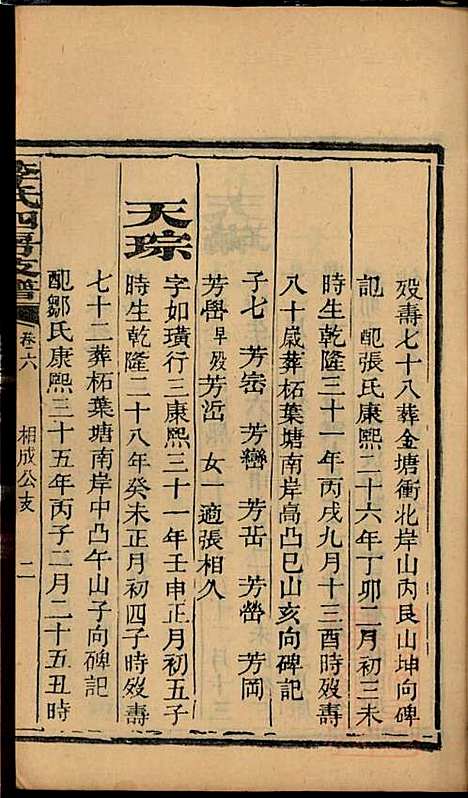 歿壽七十八葬金塘衝北岸山丙艮山坤向碑
記　配張氏康熙二十六年丁卯二月初三未
時生乾隆三十一年丙戌九月十三酉時歿壽
八十歲葬柘葉塘南岸高凸巳山亥向碑記
子七　芳崈　芳巒　芳岳　芳嶨　芳岡
芳嶨早歿芳岳　女一適張相久
天琮
字如璜行三康熙三十一年壬申正月初五子
時生乾隆二十八年癸未正月初四子時歿壽
七十二葬柘葉塘南岸中凸午山子向碑記
配鄒氏康熙三十五年丙子二月二十五丑時
李氏四房支譜　卷六　相成公支　二